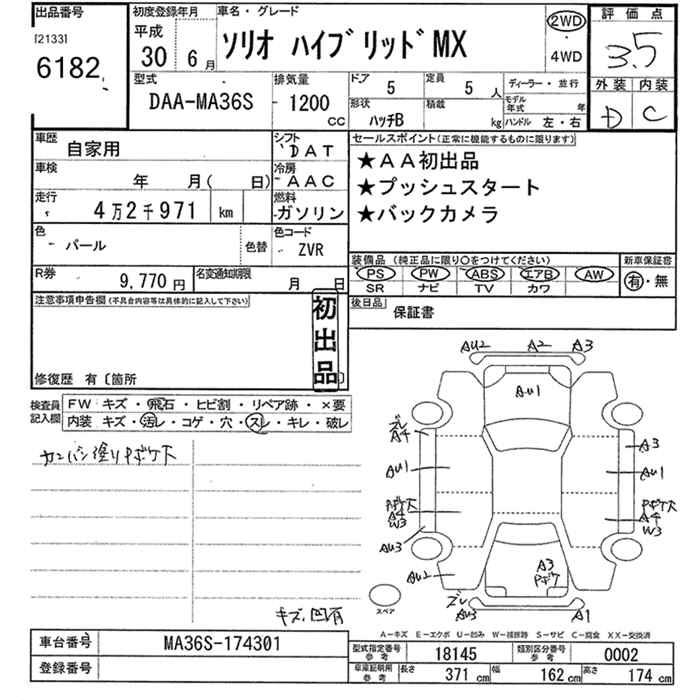 出品番号
[2133]
6182
初度登録年月
平成
30 6月
車名・グレード
ソリオ ハイブリッドMX
2WD
・
4WD
評価点
3.5
外装 内装
D C
型式
DAA-MA36S
排気量
1200
CC
ドア
5
定員
5 人
ディーラー・並行
形状
ハッチB
積載
kg
モデル年式
年
ハンドル 左・右
車歴
自家用
シフト
DAT
車検
年 月( 日)
冷房
AAC
走行
4万2千971 km
燃料
ガソリン
色
パール
色替
色コード
ZVR
R券
9,770 円
名変通知期限
月 日
セールスポイント(正常に機能するものに限ります)
★AA初出品
★プッシュスタート
★バックカメラ
装備品 (純正品に限り○をつけてください)
新車保証書
PS PW ABS エアB AW
有・無
SR ナビ TV カワ
後日品
保証書
注意事項申告欄(不具合内容等は具体的に記入して下さい)
初出品
修復歴 有〔箇所
検査員記入欄
FW キズ・飛石・ヒビ割・リペア跡・×要
内装 キズ・汚レ・コゲ・穴・スレ・キレ・破レ
キズ、凹有
AU2 A2 A3
AU1
ズレ
A4
A3
AU1
AU1
A4
W3
A4
W3
AU3
AU2
A3
ズレ
AU3
A1
スペア
A-キズ E-エクボ U-凹み W-補修跡 S-サビ C-腐食 XX-交換済
車台番号
MA36S-174301
登録番号
型式指定番号
参考
18145
類別区分番号
参考
0002
車庫証明用
参考
長さ
371 cm
幅
162 cm
高さ
174 cm